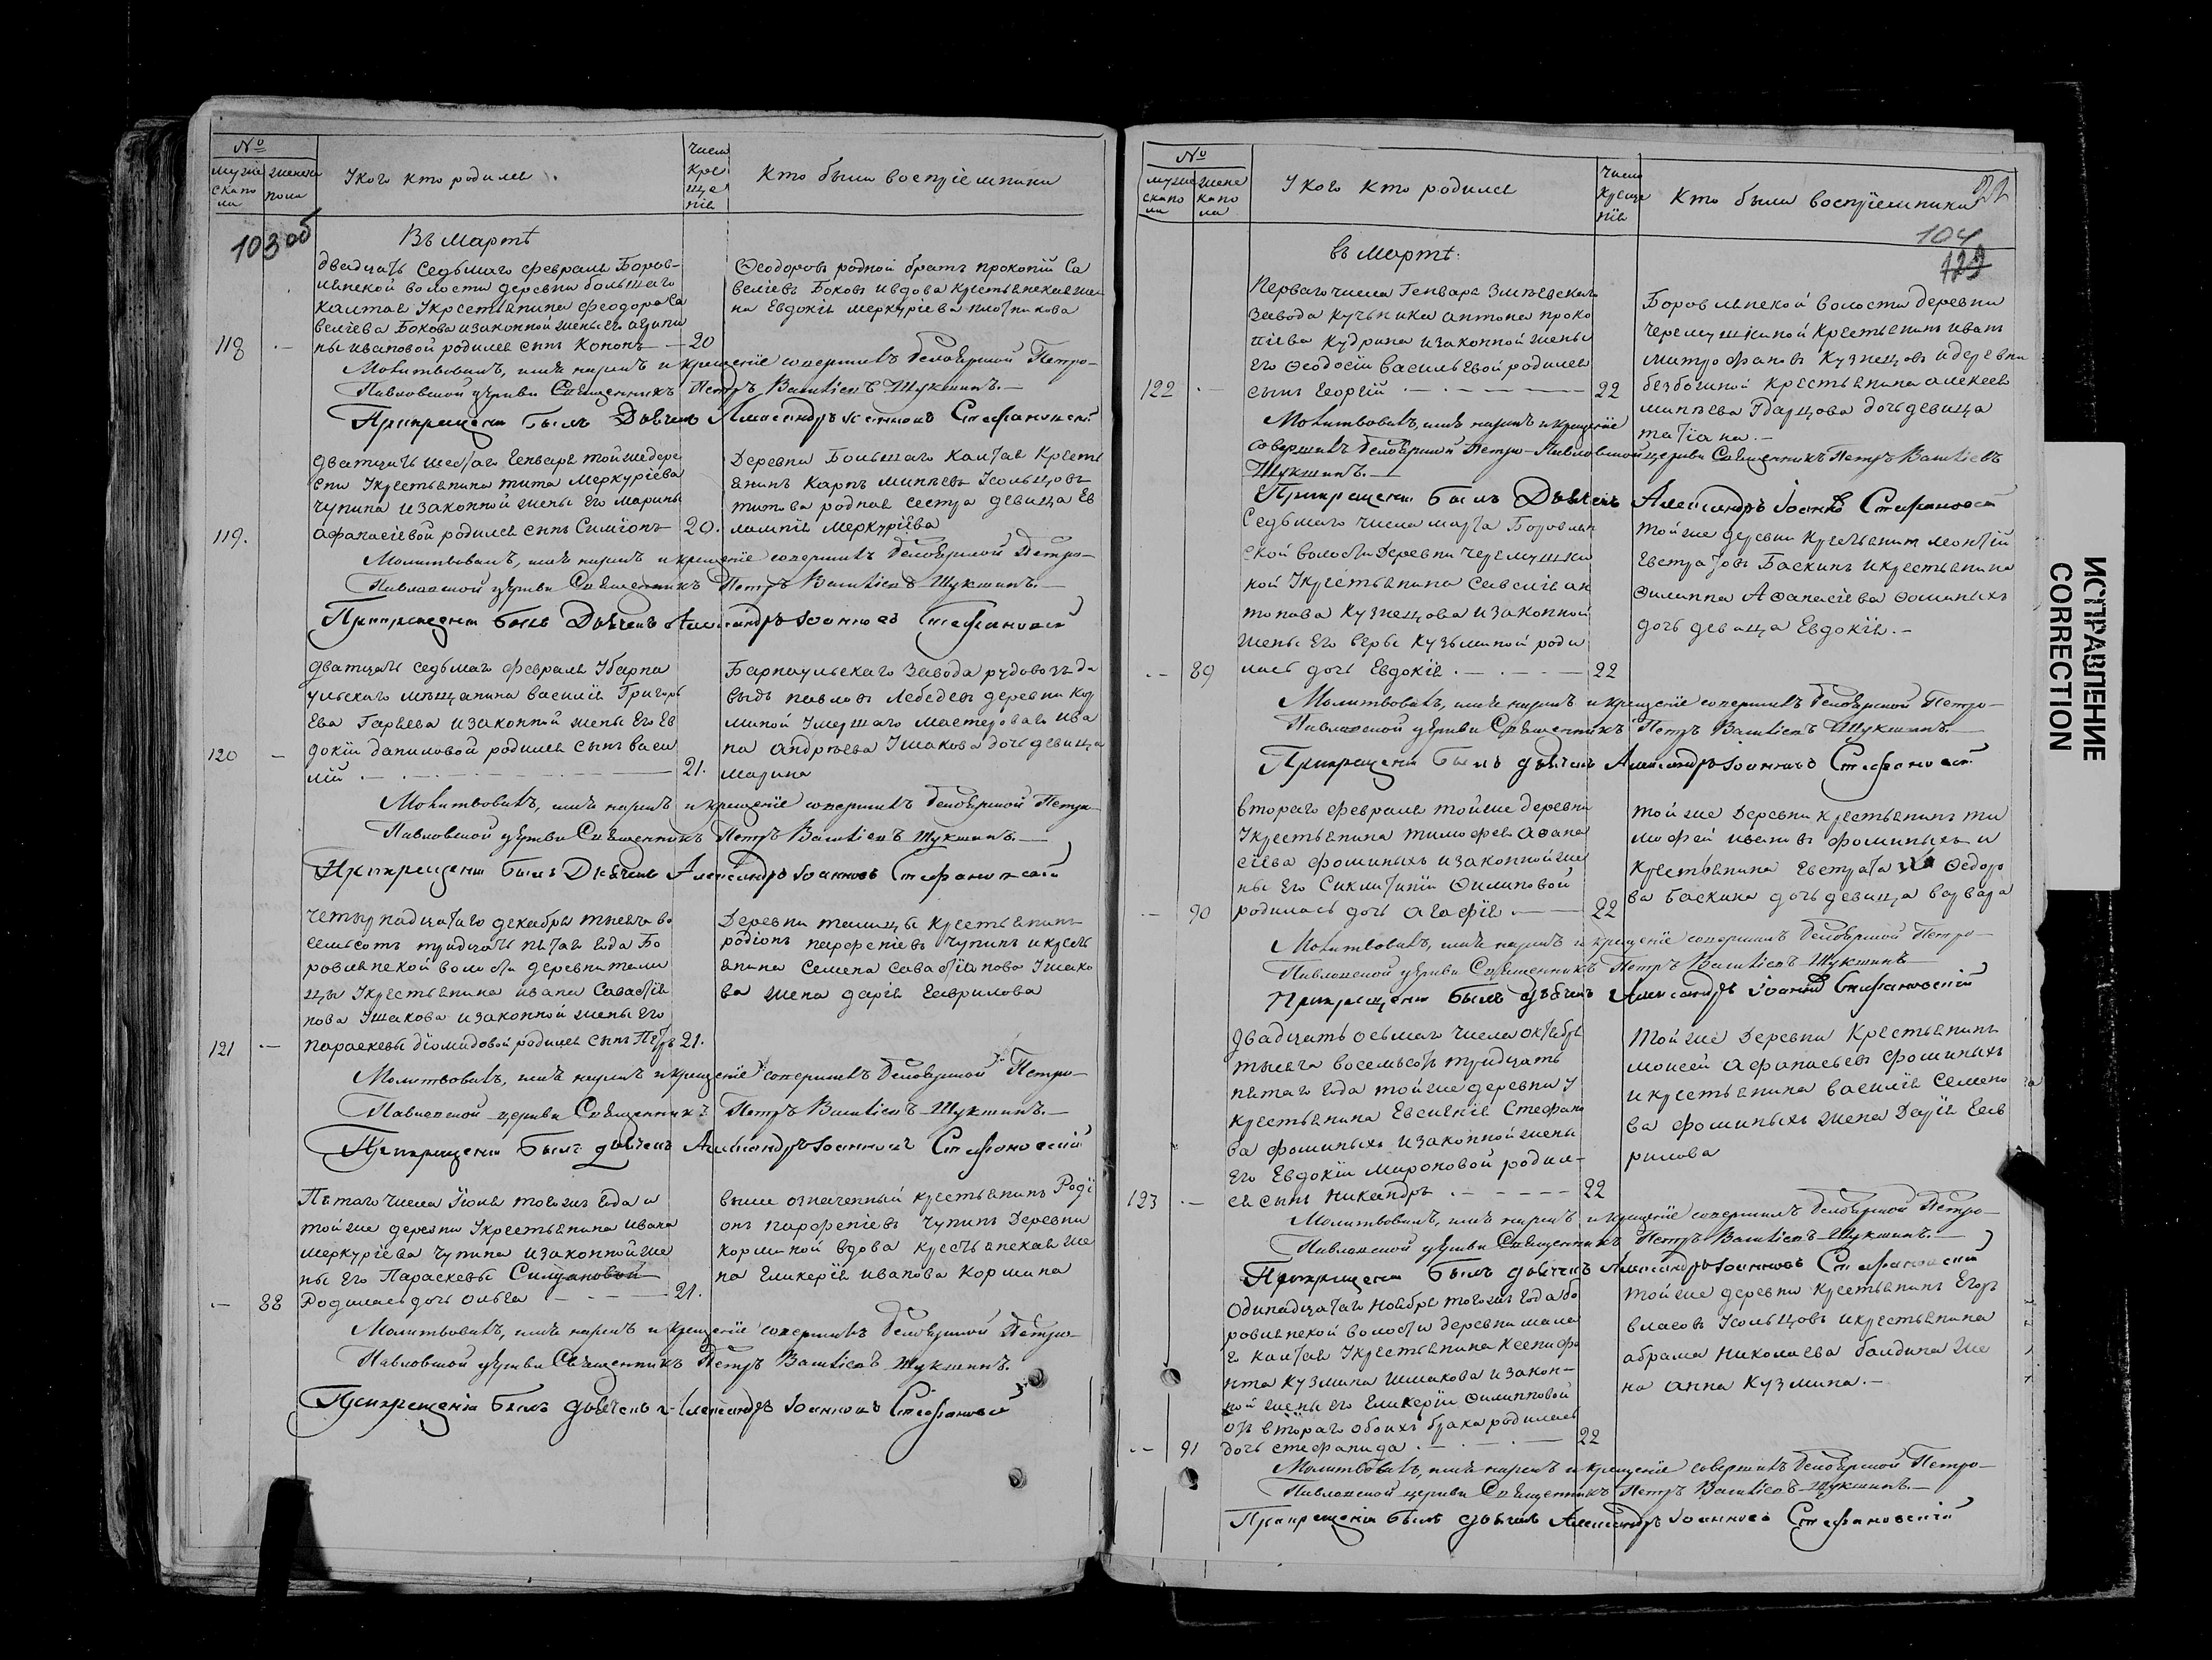 №
мужескаго пола
женска пола
У кого кто родился
число крещенія
Кто были воспріемники
103 об
Въ Мартѣ
двадцать Седьмаго февраля Боров-
лянской волости деревни большаго
калтая Укрестьянина феодора Са
веліева Бокова изаконной жены его агрипи
118 ны ивановой родился сынъ Кононъ — 20
Ѳеодоровъ родной братъ прокопій Са
веліевъ Боковъ ивдова крестьянская же
на Евдокія меркуріева плотникова
Молитвовалъ, имя нарекъ и крещеніе совершилъ белоярской Петро-
Павловской церкви Священникъ Петръ Васильевъ Шукшинъ.—
Прикрещеніи былъ Дьячекъ Александръ Іоанновъ Стефановскій
дватцать шестаго Генваря тойже дере
вни Укрестьянина тита Меркуріева
Чупина изаконной жены Его Марины
119. афанасіевой родился сынъ Симіонъ 20.
Деревни Большаго Калтая Кресть
янинъ Карпъ Минѣевъ Усольцовъ
титова родная сестра девица Ев
лампія меркуріева
Молитвовалъ, имя нарекъ и крещеніе совершилъ белоярской Петро-
Павловской церкви Священникъ Петръ Васильевъ Шукшинъ.—
Прикрещеніи былъ Дьячекъ Александръ Іоанновъ Стефановскій
дватцать седьмаго февраля Убарна
ульскаго мѣщанина василія Григорь
Ева Гаряева изаконной жены Его Ев
120 — докіи даниловой родился сынъ васи
лій — 21.
Барнаульскаго Завода рудовозъ да
выдъ павловъ Лебедевъ деревни Кор
миной Умершаго мастероваго ива
на андрѣева Ушакова дочь девица
марина
Молитвовалъ, имя нарекъ и крещеніе совершилъ белоярской Петро-
Павловской церкви Священникъ Петръ Васильевъ Шукшинъ.—
Прикрещеніи былъ Дьячекъ Александръ Іоанновъ Стефановскій
четырнадцатаго декабря тысяча во
семьсотъ тридцать пятаго года Бо
ровлянской волости деревни тали
цы Укрестьянина ивана Савастія
нова Ушакова изаконной жены Его
121 — параскевы діомидовой родился сынъ Петръ 21.
Деревни талицы крестьянинъ
родіонъ парфеніевъ Чупинъ и кресть
янина Семена савастіанова Ушако
ва жена дарія Гаврилова
Молитвовалъ, имя нарекъ и крещеніе совершилъ белоярской Петро-
Павловской церкви Священникъ Петръ Васильевъ Шукшинъ.—
Прикрещеніи былъ дьячекъ Александръ Іоанновъ Стефановскій
Пятаго числа Іюля тогожъ года и
тойже деревни Укрестьянина ивана
меркуріева Чупина изаконной же
ны Его Параскевы
— 88 Родилась дочь ольга — 21.
выше означенный крестьянинъ Родї
онъ парфеніевъ Чупинъ Деревни
корминой вдова крестьянская же
на Гликерія иванова Кормина
Молитвовалъ, имя нарекъ и крещеніе совершилъ белоярской Петро-
Павловской церкви Священникъ Петръ Васильевъ Шукшинъ.
Прикрещеніи былъ дьячекъ Александръ Іоанновъ Стефановскій
№
мужескаго пола
женскаго пола
У кого кто родился
число крещенія
Кто были воспріемники
104
въ мартѣ.
Перваго числа Генваря Змѣевскаго
Завода кучьника антона проко
піева Кудрина изаконной жены
Его Ѳеодосіи васильевой родился
122 — сынъ Георгій — 22
Боровлянской волости деревни
черемушкиной крестьянинъ иванъ
митрофановъ Кузнецовъ и деревни
безбожной крестьянина алексея
минѣева дочь девица
татіана.—
Молитвовалъ, имя нарекъ и крещеніе
совершилъ белоярской Петро-Павловской церкви Священникъ Петръ Васильевъ
Шукшинъ.—
Прикрещеніи былъ Дьячекъ Александръ Іоанновъ Стефановскій
Седьмаго числа марта Боровлян
ской волости Деревни черемушки
ной Укрестьянина савелія ан
тонова Кузнецова изаконной
жены Его веры Кузьминой роди
— 89 лась дочь Евдокія — 22
тойже деревни крестьянинъ леонтій
Евстратовъ Баскинъ икрестьянина
Филиппа Афанасіева фоминыхъ
дочь девица Евдокія.—
Молитвовалъ, имя нарекъ и крещеніе совершилъ белоярской Петро-
Павловской церкви Священникъ Петръ Васильевъ Шукшинъ.
Прикрещеніи былъ дьячекъ Александръ Іоанновъ Стефановскій
втораго февраля тойже деревни
Укрестьянина тимофея афана
сіева фоминыхъ изаконной же
ны Его Сиклитиніи Филиповой
— 90 родилась дочь агафія — 22
тойже Деревни крестьянинъ ти
мофей ивановъ фоминыхъ и
крестьянина Евстрата Ѳедоро
ва баскина дочь девица варвара
Молитвовалъ, имя нарекъ и крещеніе совершилъ белоярской Петро-
Павловской церкви Священникъ Петръ Васильевъ Шукшинъ
Прикрещеніи былъ дьячекъ Александръ Іоанновъ Стефановскій
двадцать осьмаго числа октября
тысяча восемьсотъ тридцать
пятаго года тойже деревни У
крестьянина Евсевія Стефано
ва фоминыхъ изаконной жены
Его Евдокіи Мироновой родил-
123 — ся сынъ Никандръ — 22
тойже Деревни Крестьянинъ
моисей афанасьевъ фоминыхъ
икрестьянина василія Семено
ва фоминыхъ жена Дарія Гав
рилова
Молитвовалъ, имя нарекъ и крещеніе совершилъ белоярской Петро-
Павловской церкви Священникъ Петръ Васильевъ Шукшинъ.—
Прикрещеніи былъ дьячекъ Александръ Іоанновъ Стефановскій
Одинадцатаго Ноября тогожъ года бо
ровлянской волости деревни мала
го калтая Укрестьянина Ксенофо
нта Кузмина Ишакова изакон-
ной жены его Гликеріи Филипповой
отъ втораго обоихъ брака родилась
— 91 дочь стефанида — 22
тойже деревни крестьянинъ Егоръ
власовъ Усольцовъ икрестьянина
абрама Николаева болдина же
на анна Кузмина.—
Молитвовалъ, имя нарекъ и крещеніе совершилъ белоярской Петро-
Павловской церкви Священникъ Петръ Васильевъ Шукшинъ.—
Прикрещеніи былъ дьячекъ Александръ Іоанновъ Стефановскій
ИСПРАВЛЕНИЕ
CORRECTION